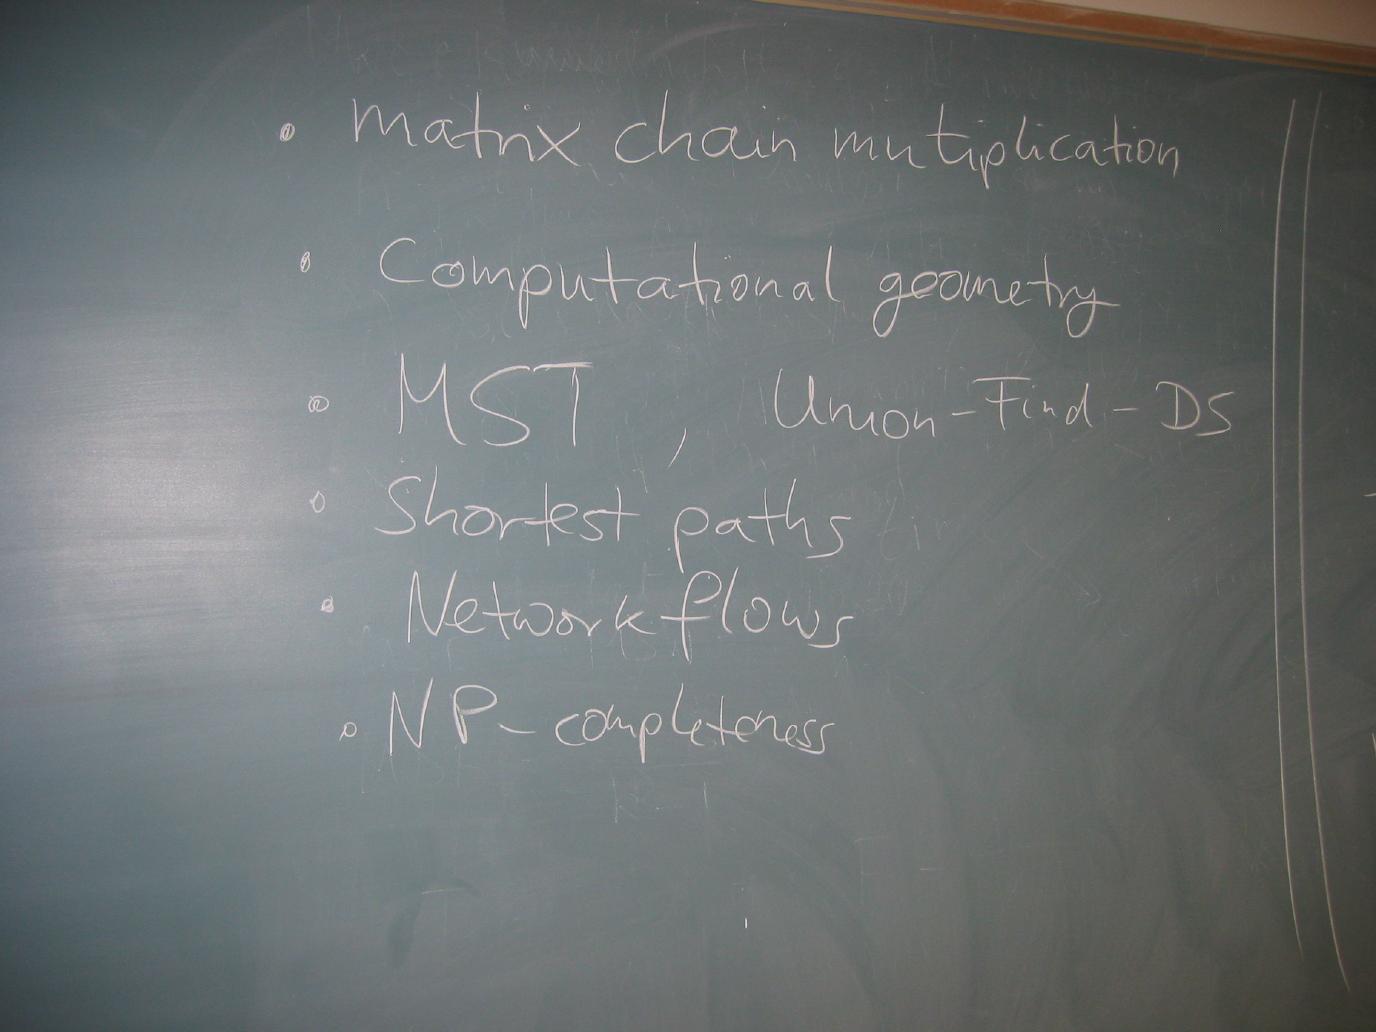 • matrix chain mutiplication
• Computational geometry
• MST , Union-Find-DS
• Shortest paths
• Network flows
• NP-completeness